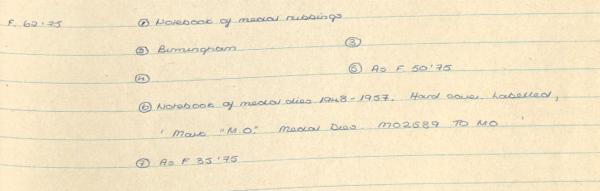 F. 62'75 ① Notebook of medal rubbings
② Birmingham ③
④ ⑤ As F. 50'75
⑥ Notebook of medal dies 1948-1957. Hard cover. Labelled,
' Mark "M.O." Medal Dies MO2589 TO MO '
⑦ As F 35'75